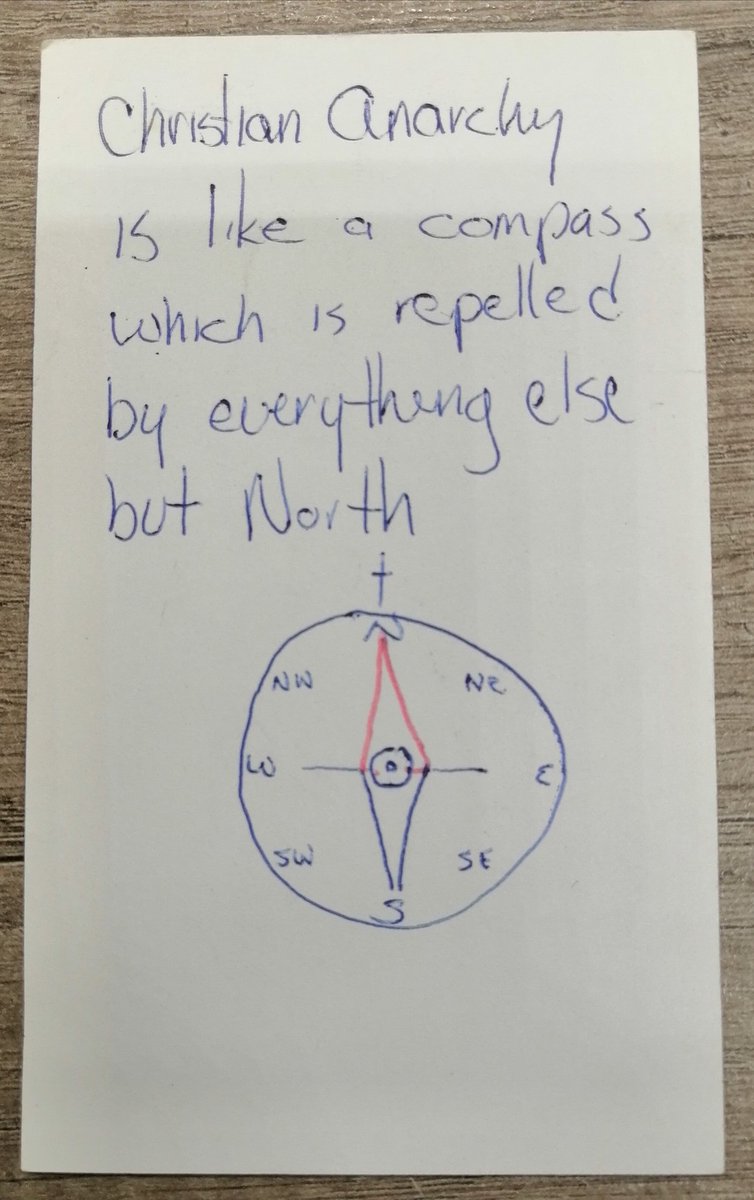 Christian Anarchy
is like a compass
which is repelled
by everything else
but North
N
NW NE
W E
SW SE
S